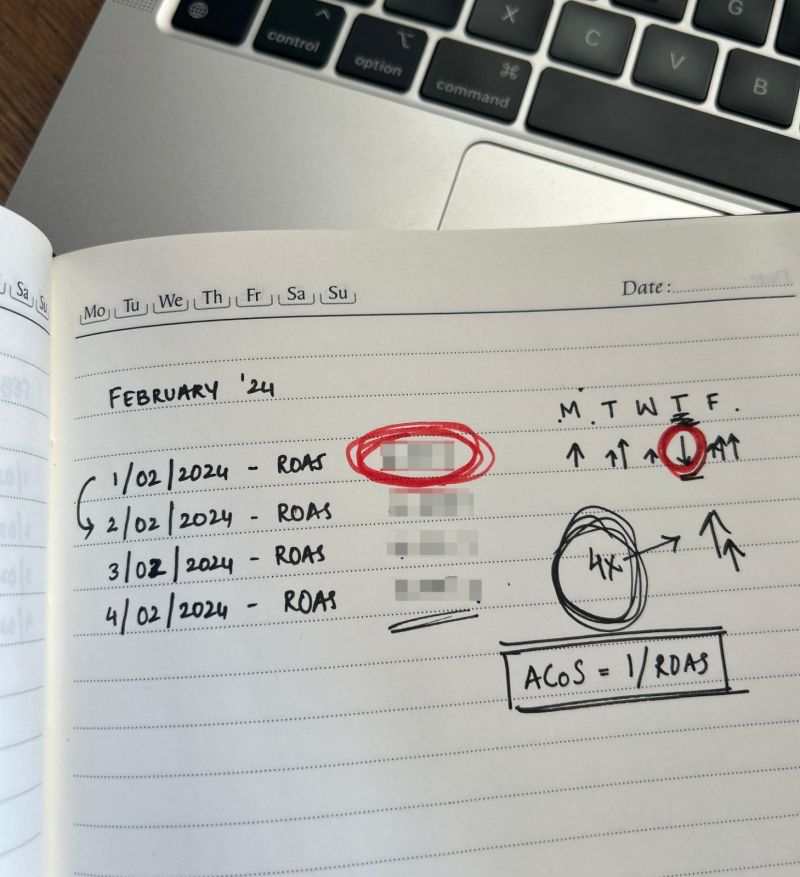 control
option
command
X
C
V
B
G
Sa
Su
Mo Tu We Th Fr Sa Su
Date :
FEBRUARY '24
1/02/2024 - ROAS
2/02/2024 - ROAS
3/02/2024 - ROAS
4/02/2024 - ROAS
M T W T F
4x
ACoS = 1/ROAS